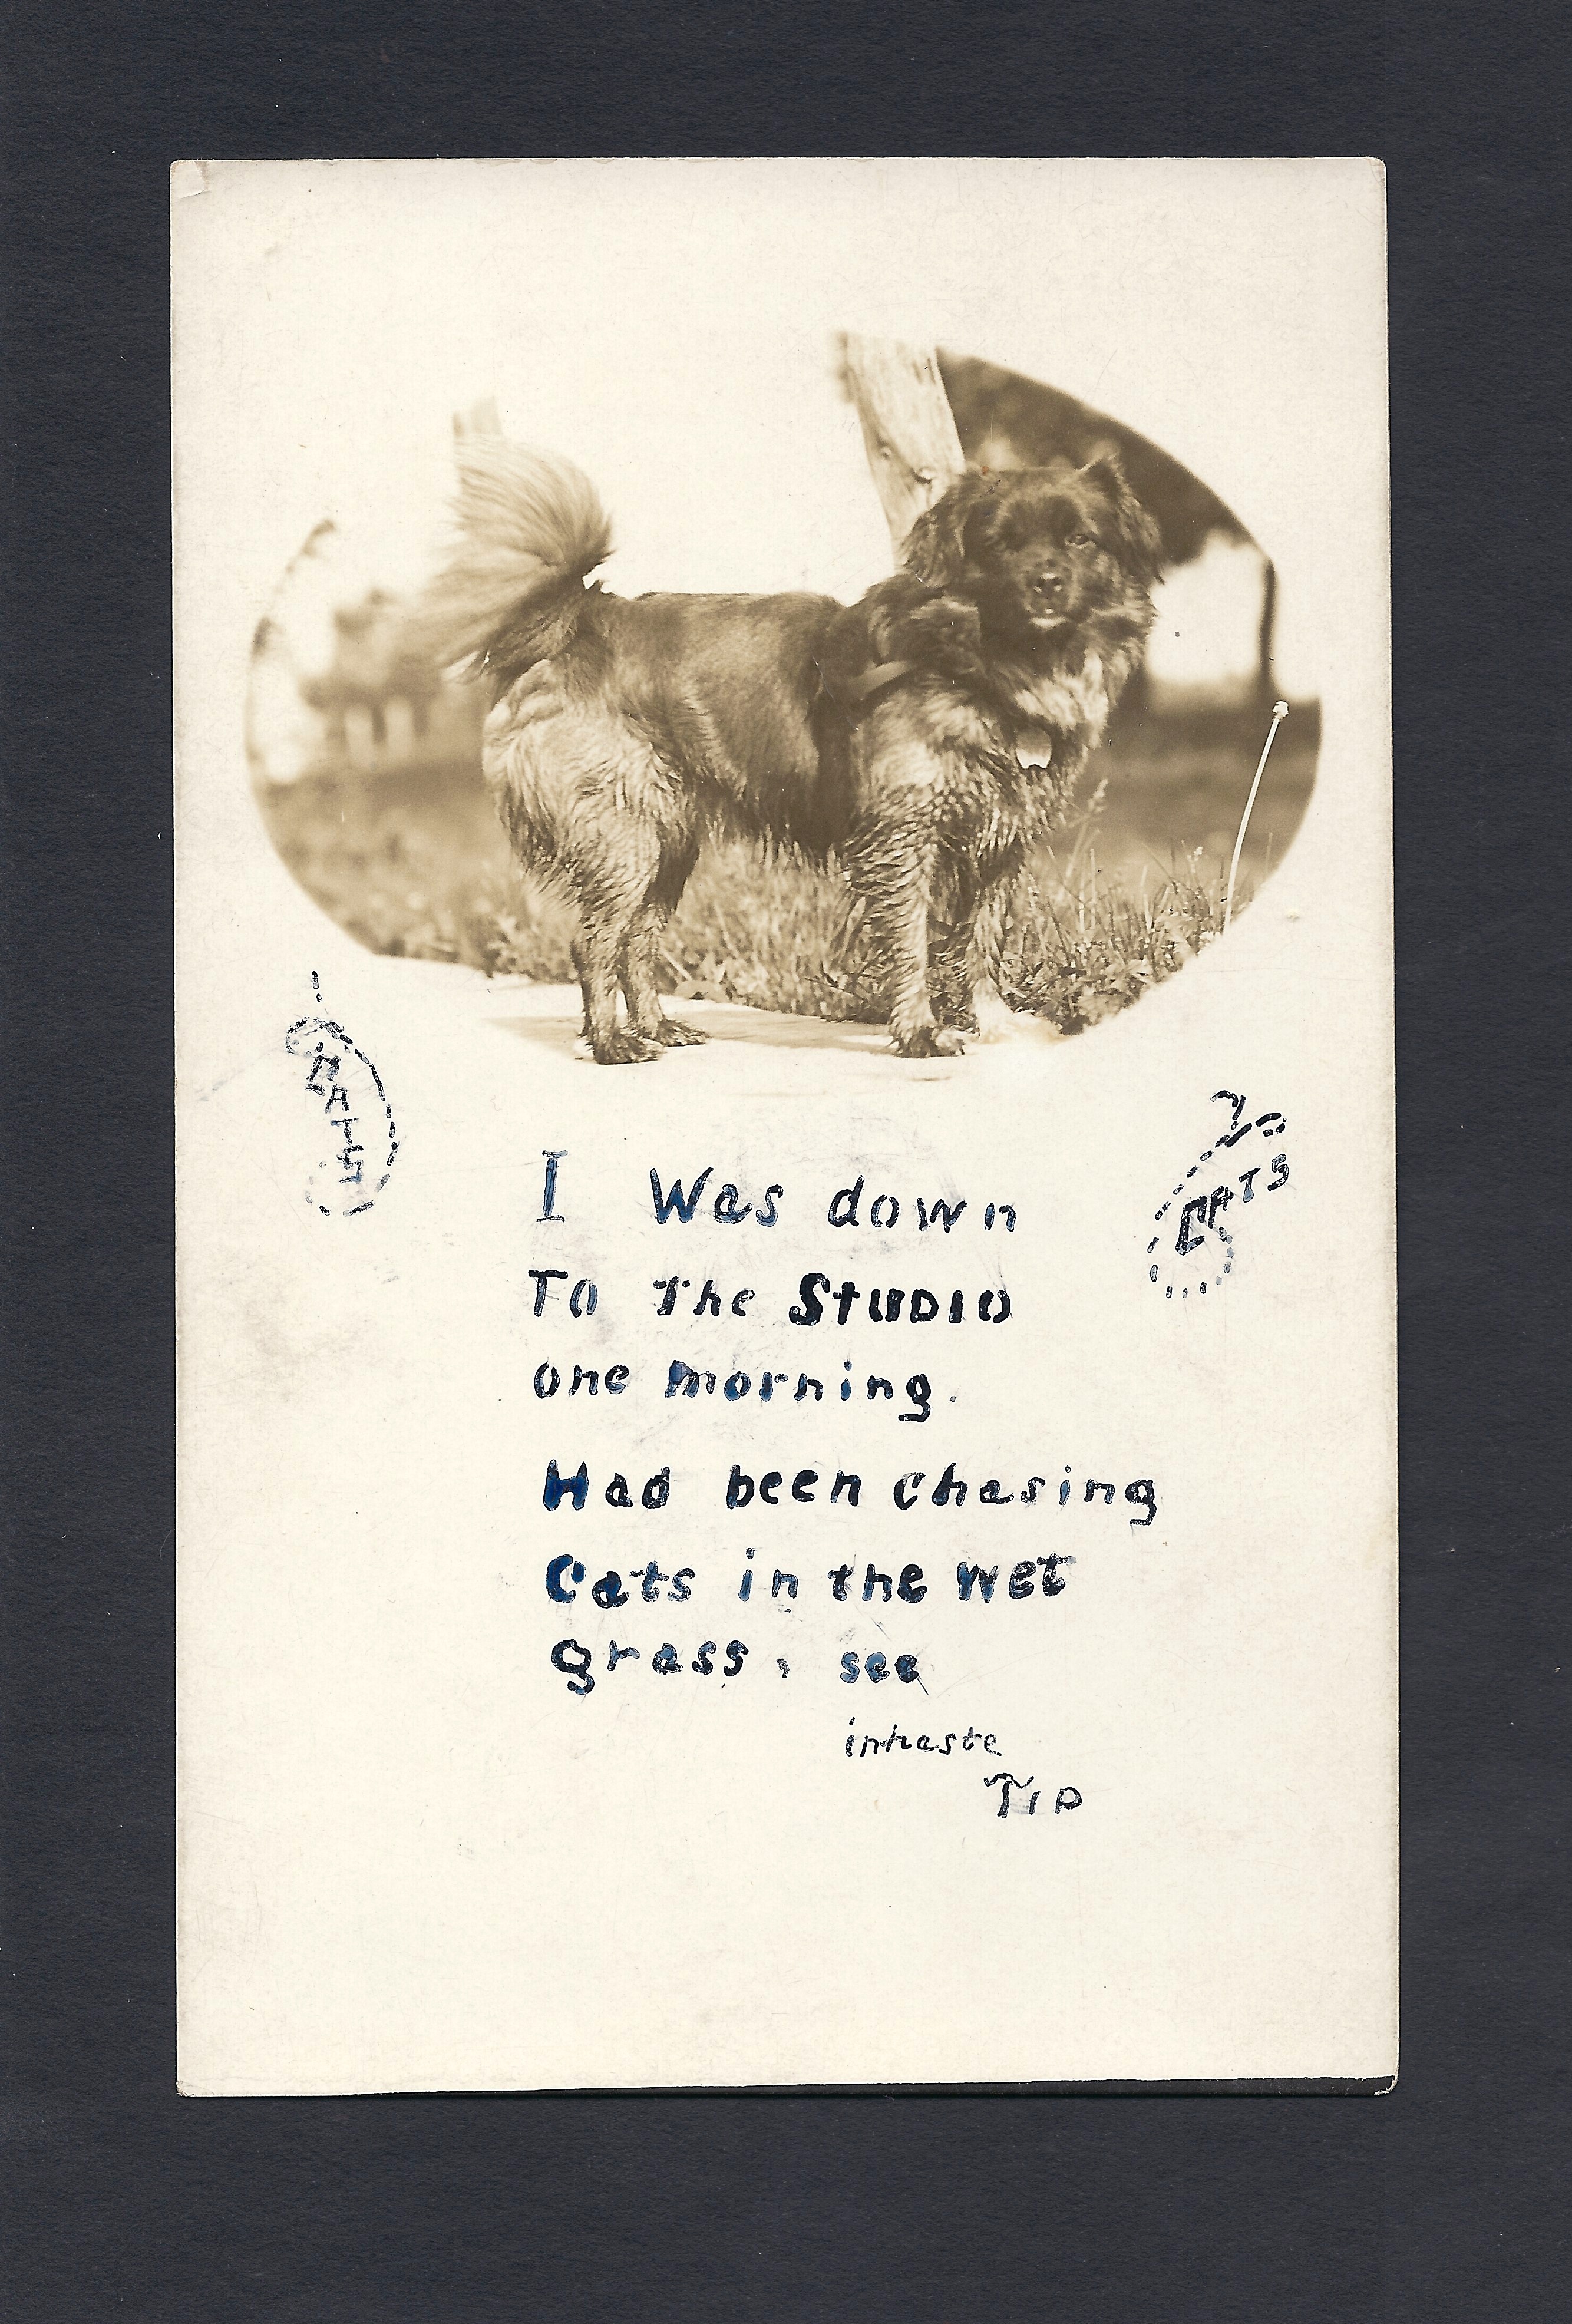 RATS
CATS
I Was down
To The STUDIO
one morning.
Had been chasing
Cats in the wet
grass, see
inhaste
TIP